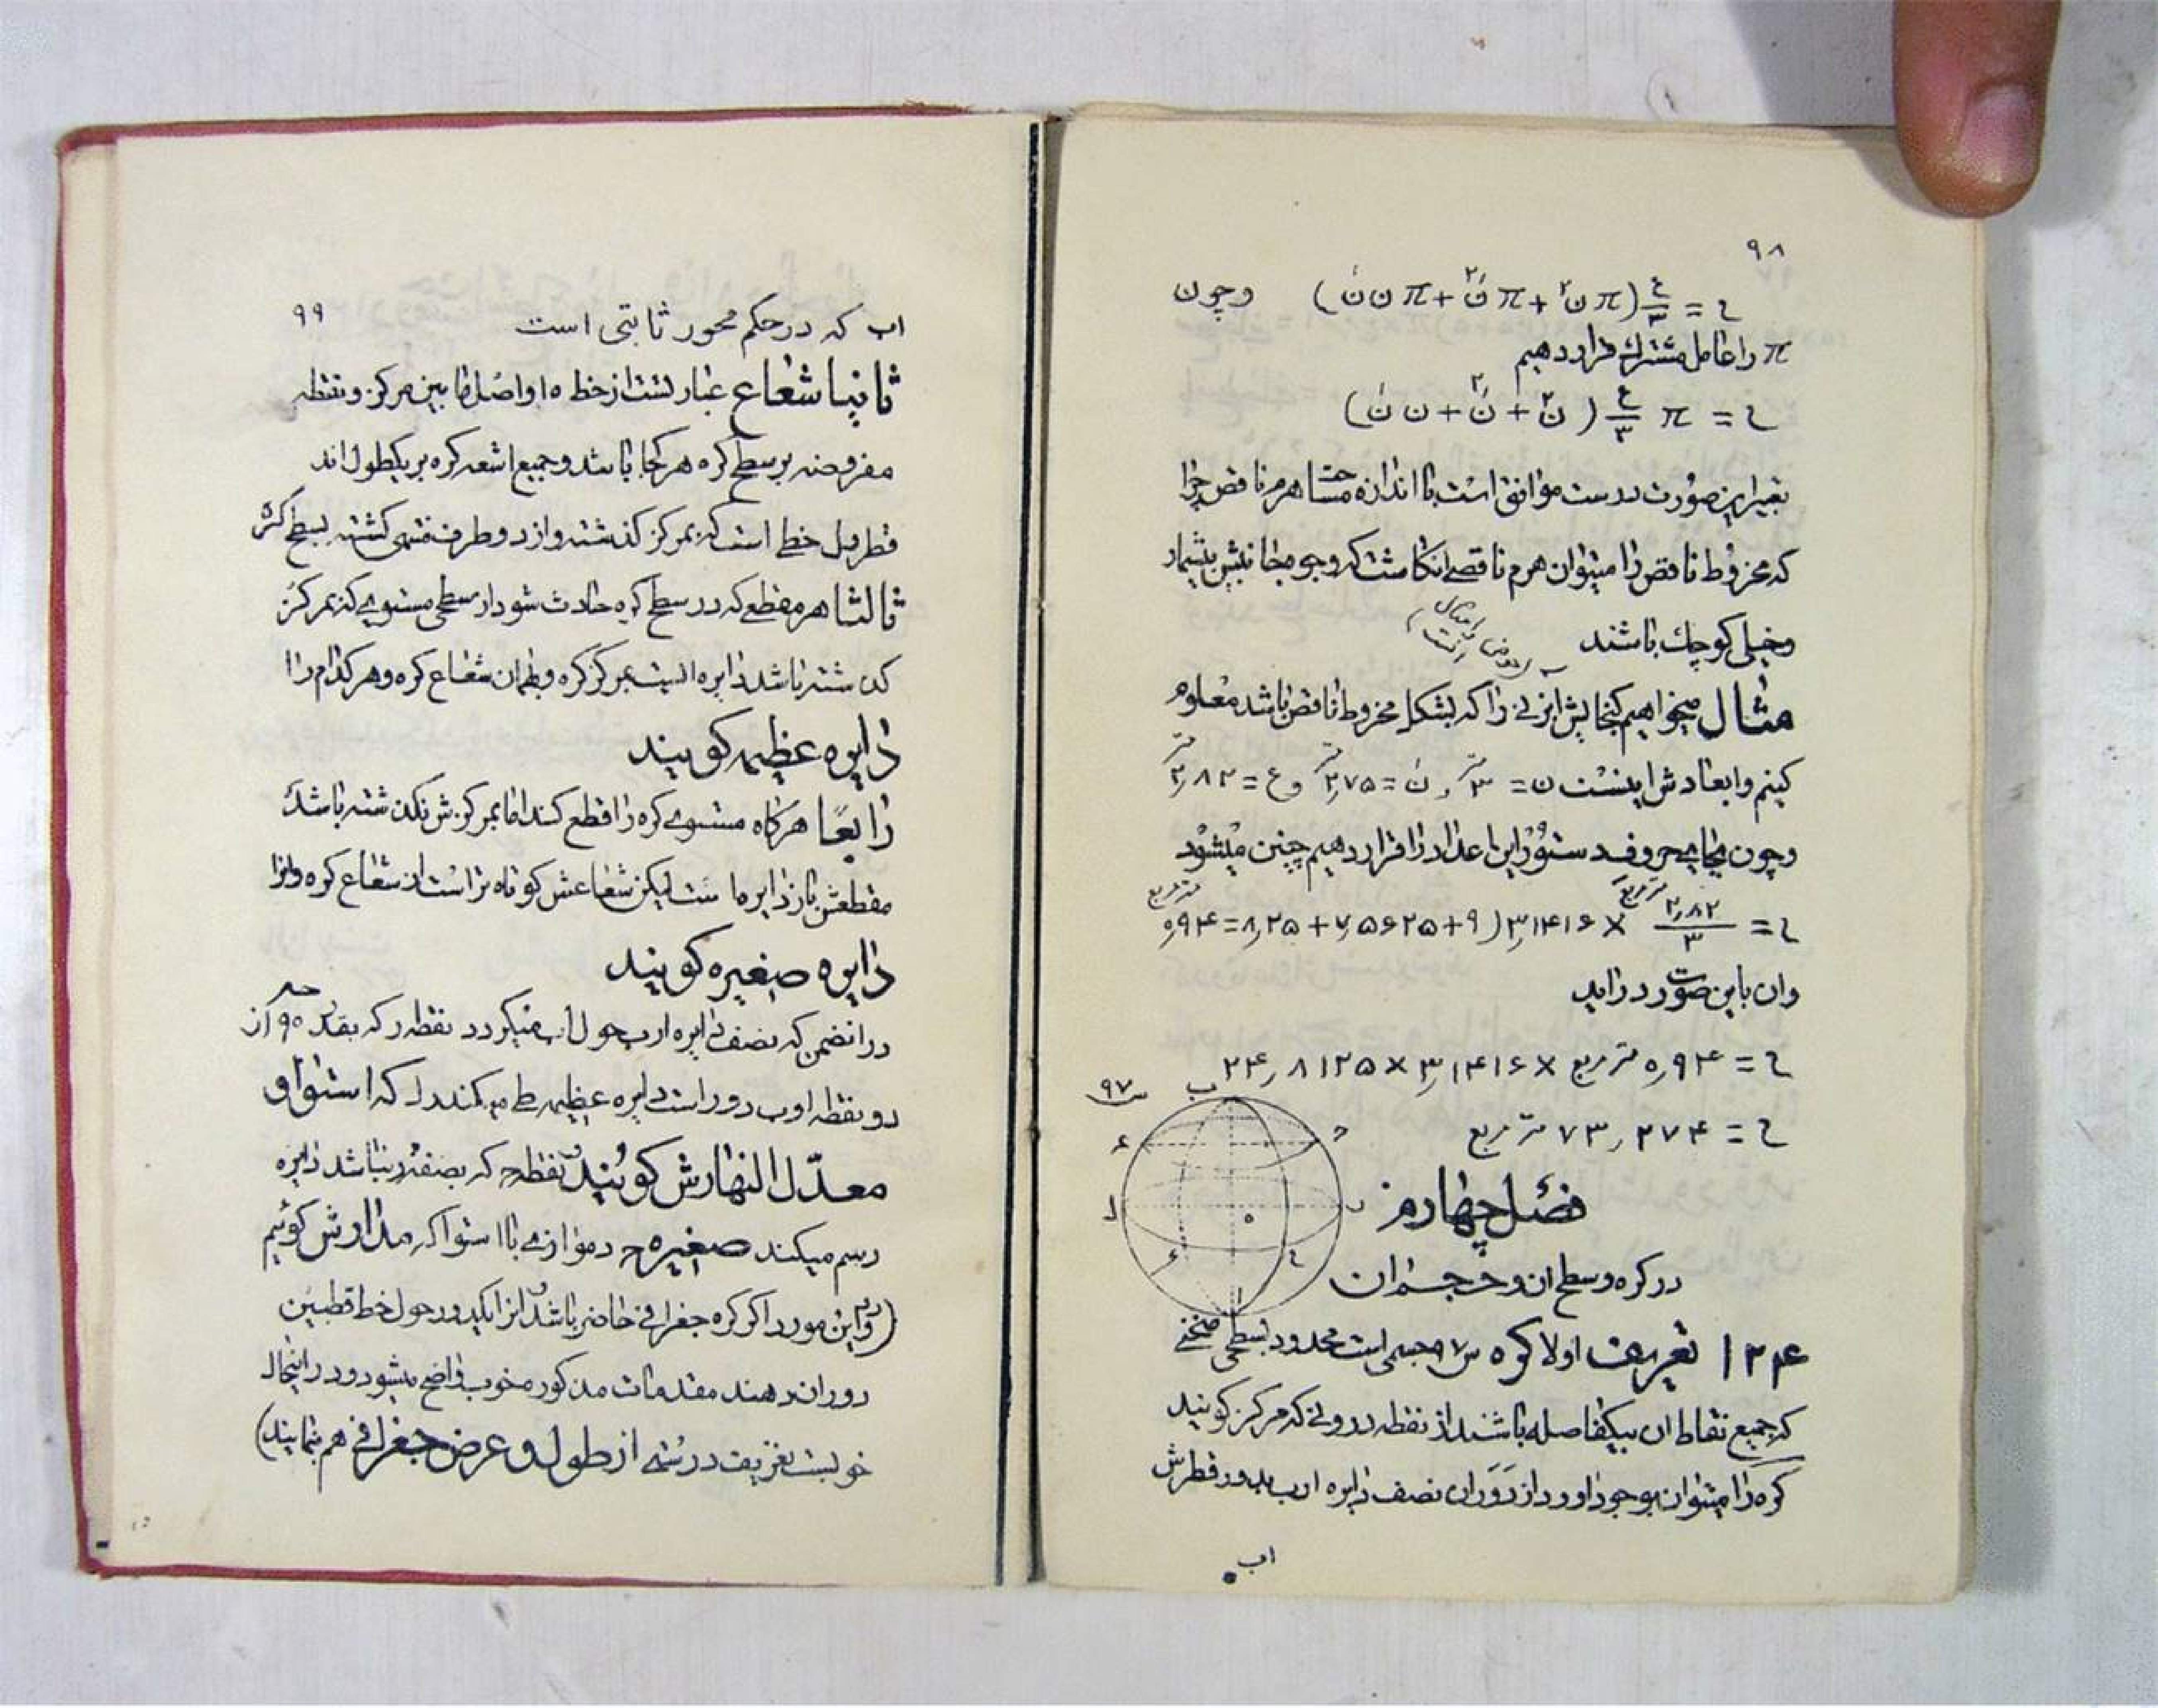 ۹۸
ح = ع/۳ (π ن۲ + π نَ۲ + π ن نَ) وچون
π را عامل مشترك قرار دهیم
ح = π ع/۳ (ن۲ + نَ۲ + ن نَ)
بغیر این صورت درست موافق است با اندازه مساحت هرم ناقص چرا
که مخروط ناقص را میتوان هرم ناقصی انکاشت که وجوه مجانبش بیشمار
وخیلی کوچك باشند
مثال میخواهیم کنجایش ابزنی را که بشکل مخروط ناقص باشد معلوم
کنیم وابعادش اینست ن = ۳ متر و نَ = ۲٫۷۵ متر و ع = ۲٫۸۲ متر
وچون بجای حروف دستور این اعداد را قرار دهیم چنین میشود
ح = ۲٫۸۲/۳ × ۳٫۱۴۱۶ (۹+۷٫۵۶۲۵+۸٫۲۵ = ۰٫۹۴
وان باین صورت در اید
ح = ۰٫۹۴ متر مربع × ۳٫۱۴۱۶ × ۲۴٫۸۱۲۵
ح = ۷۳٫۲۷۴ متر مربع
س ۹۷
فصل چهارم
در کره وسطح ان وحجم ان
۱۲۴ تعریف اولا کره س ۹۷ جسمی است محدود بسطحی منحنی
که جمیع نقاط ان بیکفاصله باشند از نقطه درونی که مرکز کویند
کره را میتوان بوجود اورد از دوران نصف دایره ارب بدور قطرش
اب
۹۹
اب که در حکم محور ثابتی است
ثانیا شعاع عبارتست از خط ه ا واصل ما بین مرکز و نقطه
مفروضه بر سطح کره هر کجا باشد وجمیع اشعه کره بر یکطول اند
قطر دل خطی است که بمرکز کذشته واز دو طرف منتهی کشته بسطح کره
ثالثا هر مقطع که در سطح کره حادث شود از سطحی مستوی که بمرکز
کذشته باشد دایره ایست بمرکز کره وبهمان شعاع کره وهر کدام را
دایره عظیمه کویند
رابعًا هرکاه مستوی کره را قطع کند اما بمرکزش نکذشته باشد
مقطعش باز دایره است لیکن شعاعش کوتاه تر است از شعاع کره وانرا
دایره صغیره کویند
در انضمن که نصف دایره ارب حول اب میکردد نقطه ر که بقدر ۹۰ از
دو نقطه ا وب دور است دایره عظیمه طی میکند رل که استوا و
معدّل النهارش کویند نقطه ج که بصفت ر نباشد دایره
رسم میکند صغیره ج د موازی با استوا که مدارش کوئیم
(در این مورد اکر کره جغرافی حاضر باشد انرا بکیرد و حول خط قطبین
دوران دهند مقدمات مذکوره خوب واضح میشود و در اینحال
خوبست تعریف درستی از طول و عرض جغرافی هم بنمایند)